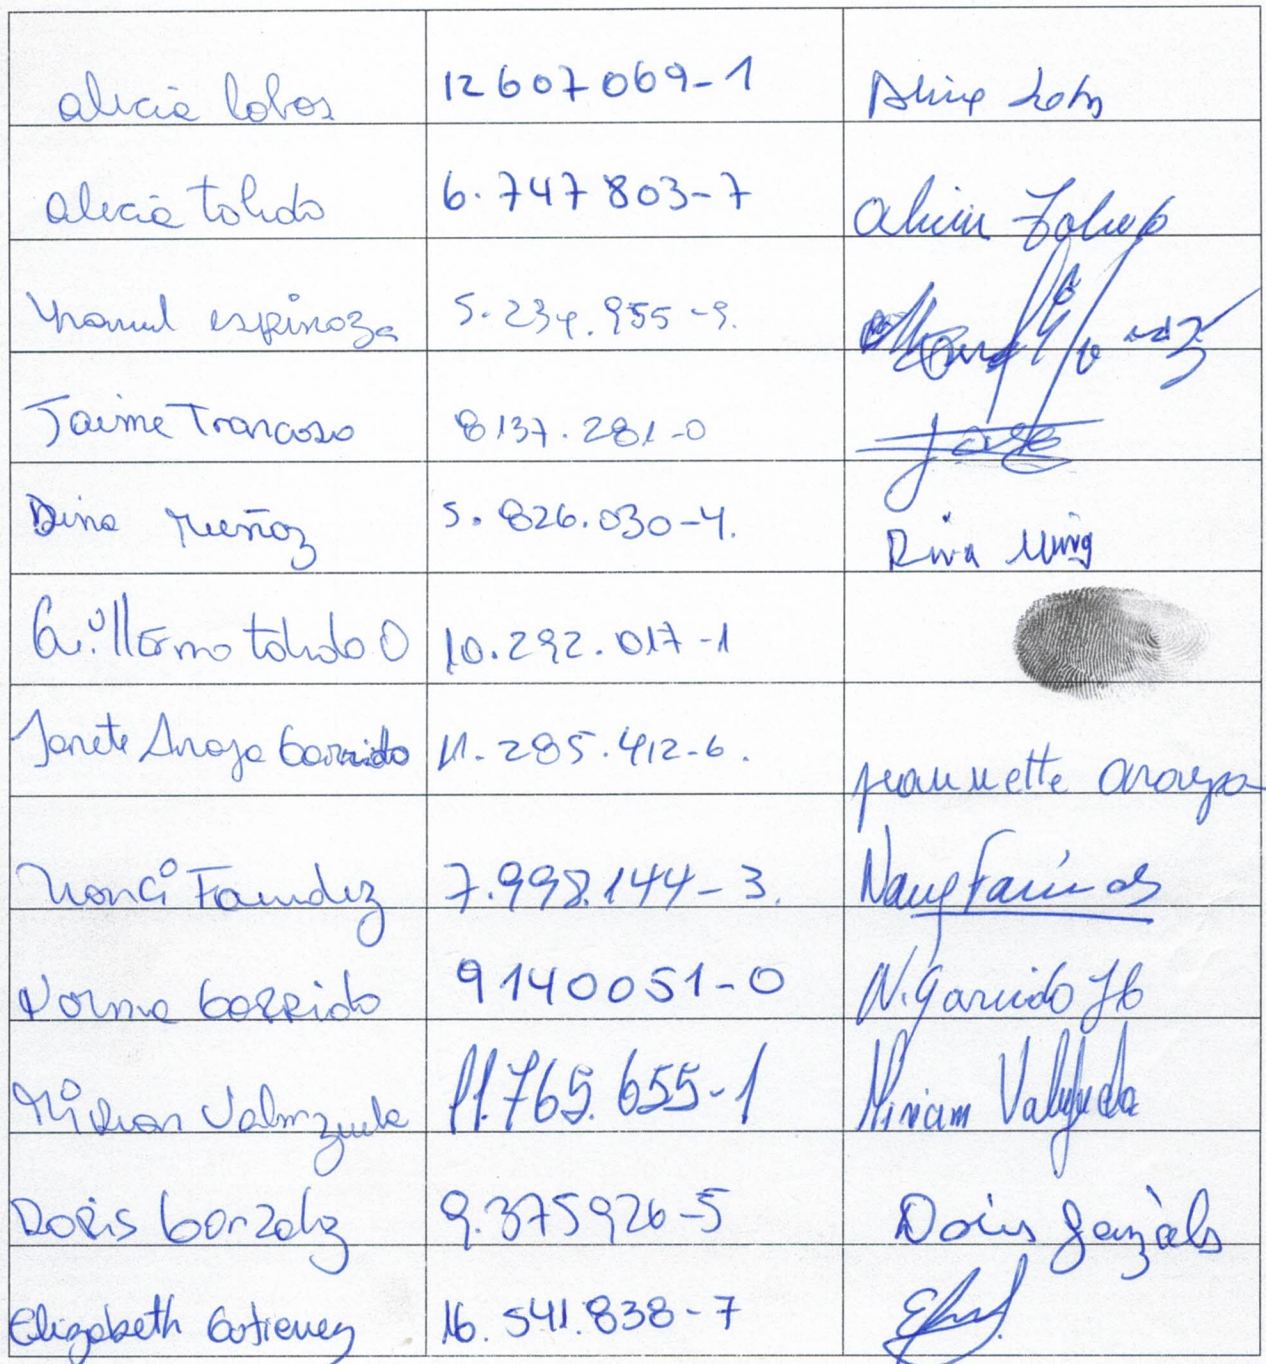 alicia lobos 12607069-1
alicia toledo 6.747803-7 alicia Toledo
Manuel espinoza 5.234.955-9.
Jaime Troncoso 8137.281-0
Dina Muñoz 5.826.030-4. Dina
Guillermo toledo O 10.292.017-1
Janete Araya Garrido 11.285.412-6. Jeannette Araya
Nanci Faundez 7.998.144-3.
Norma Garrido 9140051-0 N. Garrido
Mirian Valenzuela 11.765.655-1 Miriam
Doris Gonzalez 9.375926-5 Doris
Elizabeth Gutierrez 16.541.838-7